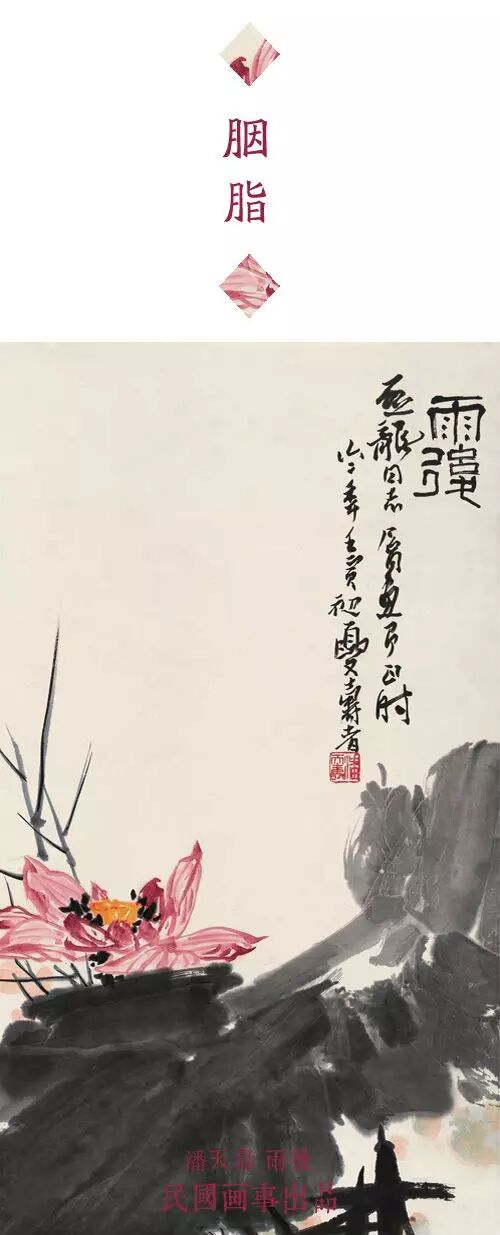 胭脂
雨後
龍同志屬畫即正時
六二年壬寅初夏壽者
潘天壽 雨後
民國画事出品